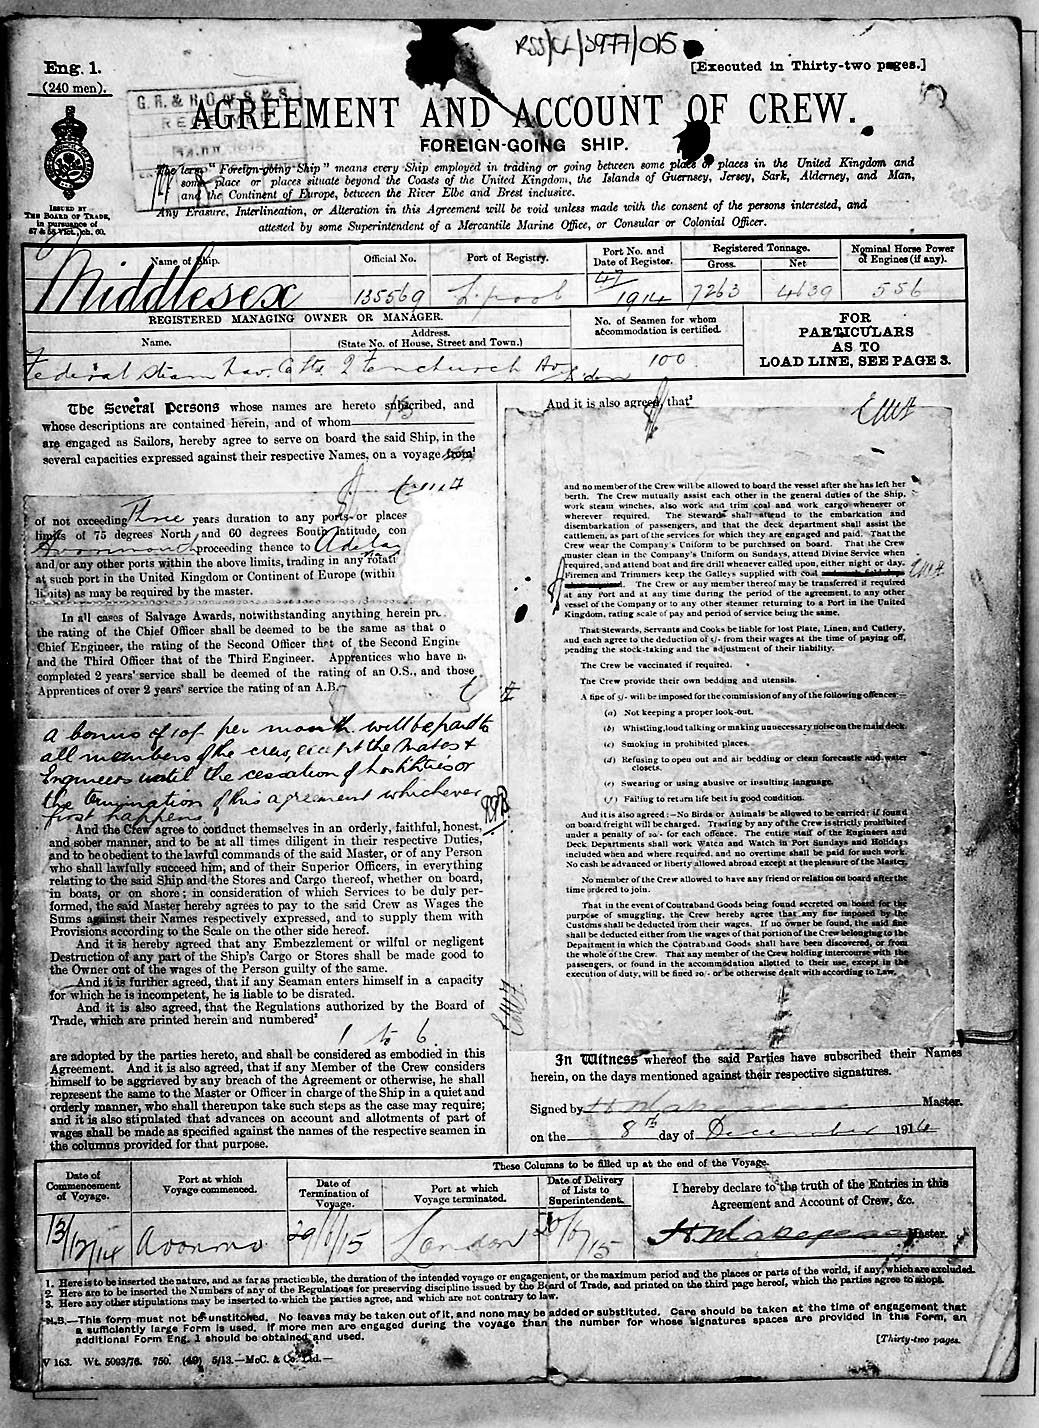 RSS/CL/3977/015
Eng. 1.
(240 men).
[Executed in Thirty-two pages.]
G. R. & HOMES & S
RE
AGREEMENT AND ACCOUNT OF CREW.
FOREIGN-GOING SHIP.
The term "Foreign-going Ship" means every Ship employed in trading or going between some place or places in the United Kingdom and
some place or places situate beyond the Coasts of the United Kingdom, the Islands of Guernsey, Jersey, Sark, Alderney, and Man,
and the Continent of Europe, between the River Elbe and Brest inclusive.
Any Erasure, Interlineation, or Alteration in this Agreement will be void unless made with the consent of the persons interested, and
attested by some Superintendent of a Mercantile Marine Office, or Consular or Colonial Officer.
ISSUED BY
THE BOARD OF TRADE,
in pursuance of
57 & 58 Vict., ch. 60.
Name of Ship.
Official No.
Port of Registry.
Port No. and
Date of Register.
Registered Tonnage.
Gross.
Net
Nominal Horse Power
of Engines (if any).
Middlesex
135569
L'pool
47/1914
7263
4639
556
REGISTERED MANAGING OWNER OR MANAGER.
Name.
Address.
(State No. of House, Street and Town.)
No. of Seamen for whom
accommodation is certified.
FOR
PARTICULARS
AS TO
LOAD LINE, SEE PAGE 3.
Federal Steam Nav. Co Ltd. 2 Fenchurch Av. L'don
100
The Several Persons whose names are hereto subscribed, and
whose descriptions are contained herein, and of whom
are engaged as Sailors, hereby agree to serve on board the said Ship, in the
several capacities expressed against their respective Names, on a voyage from¹
of not exceeding Three years duration to any ports or places
limits of 75 degrees North and 60 degrees South latitude, con
Avonmouth proceeding thence to Adelai
and/or any other ports within the above limits, trading in any rotati
at such port in the United Kingdom or Continent of Europe (withi
limits) as may be required by the master.
In all cases of Salvage Awards, notwithstanding anything herein
the rating of the Chief Officer shall be deemed to be the same as that o
Chief Engineer, the rating of the Second Officer that of the Second Engine
and the Third Officer that of the Third Engineer. Apprentices who have
completed 2 years' service shall be deemed of the rating of an O.S., and those
Apprentices of over 2 years' service the rating of an A.B.
A bonus of 10/- per month will be paid to
all members of the crew, except the Mates &
Engineers until the cessation of hostilities or
the termination of this agreement whichever
first happens.
And the Crew agree to conduct themselves in an orderly, faithful, honest,
and sober manner, and to be at all times diligent in their respective Duties,
and to be obedient to the lawful commands of the said Master, or of any Person
who shall lawfully succeed him, and of their Superior Officers, in everything
relating to the said Ship and the Stores and Cargo thereof, whether on board,
in boats, or on shore; in consideration of which Services to be duly per-
formed, the said Master hereby agrees to pay to the said Crew as Wages the
Sums against their Names respectively expressed, and to supply them with
Provisions according to the Scale on the other side hereof.
And it is hereby agreed that any Embezzlement or wilful or negligent
Destruction of any part of the Ship's Cargo or Stores shall be made good to
the Owner out of the wages of the Person guilty of the same.
And it is further agreed, that if any Seaman enters himself in a capacity
for which he is incompetent, he is liable to be disrated.
And it is also agreed, that the Regulations authorized by the Board of
Trade, which are printed herein and numbered²
1 to 6
are adopted by the parties hereto, and shall be considered as embodied in this
Agreement. And it is also agreed, that if any Member of the Crew considers
himself to be aggrieved by any breach of the Agreement or otherwise, he shall
represent the same to the Master or Officer in charge of the Ship in a quiet and
orderly manner, who shall thereupon take such steps as the case may require;
and it is also stipulated that advances on account and allotments of part of
wages shall be made as specified against the names of the respective seamen in
the columns provided for that purpose.
And it is also agreed, that³
and no member of the Crew will be allowed to board the vessel after she has left her
berth. The Crew mutually assist each other in the general duties of the Ship,
work steam winches, also work and trim coal and work cargo whenever or
wherever required. The Stewards shall attend to the embarkation and
disembarkation of passengers, and that the deck department shall assist the
cattlemen, as part of the services for which they are engaged and paid. That the
Crew wear the Company's Uniform to be purchased on board. That the Crew
muster clean in the Company's Uniform on Sundays, attend Divine Service when
required, and attend boat and fire drill whenever called upon, either night or day.
Firemen and Trimmers keep the Galleys supplied with coal
The Crew or any member thereof may be transferred if required
at any Port and at any time during the period of the agreement, to any other
vessel of the Company or to any other steamer returning to a Port in the United
Kingdom, rating scale of pay and period of service being the same.
That Stewards, Servants and Cooks be liable for lost Plate, Linen, and Cutlery,
and each agree to the deduction of 5/- from their wages at the time of paying off,
pending the stock-taking and the adjustment of their liability.
The Crew be vaccinated if required.
The Crew provide their own bedding and utensils.
A fine of 5/- will be imposed for the commission of any of the following offences:—
(a) Not keeping a proper look-out.
(b) Whistling, loud talking or making unnecessary noise on the main deck.
(c) Smoking in prohibited places.
(d) Refusing to open out and air bedding or clean forecastle and water
closets.
(e) Swearing or using abusive or insulting language.
(f) Failing to return life belt in good condition.
And it is also agreed:—No Birds or Animals be allowed to be carried; if found
on board freight will be charged. Trading by any of the Crew is strictly prohibited
under a penalty of 20/- for each offence. The entire staff of the Engineers and
Deck Departments shall work Watch and Watch in Port Sundays and Holidays
included when and where required, and no overtime shall be paid for such work.
No cash be advanced or liberty allowed abroad except at the pleasure of the Master.
No member of the Crew allowed to have any friend or relation on board after the
time ordered to join.
That in the event of Contraband Goods being found secreted on board for the
purpose of smuggling, the Crew hereby agree that any fine imposed by the
Customs shall be deducted from their wages. If no owner be found, the said fine
shall be deducted either from the wages of that portion of the Crew belonging to the
Department in which the Contraband Goods shall have been discovered, or from
the whole of the Crew. That any member of the Crew holding intercourse with the
passengers, or found in the accommodation allotted to their use, except in the
execution of duty, will be fined 10/- or be otherwise dealt with according to Law.
In Witness whereof the said Parties have subscribed their Names
herein, on the days mentioned against their respective signatures.
Signed by Master.
on the 8th day of December 1914
These Columns to be filled up at the end of the Voyage.
Date of
Commencement
of Voyage.
Port at which
Voyage commenced.
Date of
Termination of
Voyage.
Port at which
Voyage terminated.
Date of Delivery
of Lists to
Superintendent.
I hereby declare to the truth of the Entries in this
Agreement and Account of Crew, &c.
13/12/14
Avonmo
29/6/15
London
Master.
1. Here is to be inserted the nature, and as far as practicable, the duration of the intended voyage or engagement, or the maximum period and the places or parts of the world, if any, which are excluded.
2. Here are to be inserted the Numbers of any of the Regulations for preserving discipline issued by the Board of Trade, and printed on the third page hereof, which the parties agree to adopt.
3. Here any other stipulations may be inserted to which the parties agree, and which are not contrary to law.
N.B.—This form must not be unstitched. No leaves may be taken out of it, and none may be added or substituted. Care should be taken at the time of engagement that
a sufficiently large Form is used. If more men are engaged during the voyage than the number for whose signatures spaces are provided in this Form, an
additional Form Eng. 1 should be obtained and used.
[Thirty-two pages.
V 163. Wt. 5093/76. 750. (49) 5/13.—McC. & Co. Ltd.—